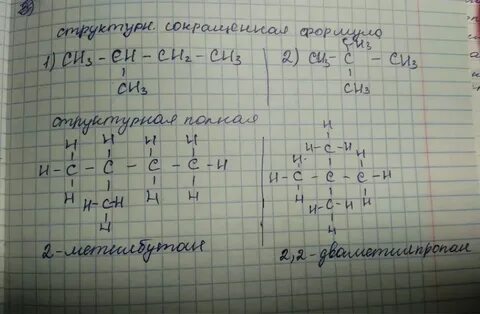 структурн. сокращенная формула
1) CH3 - CH - CH2 - CH3
CH3
2) CH3 - C - CH3
CH3
CH3
структурная полная
H H H H
H - C - C - C - C - H
H H H
H - C - H
H
2-метилбутан
H
H - C - H
H H
H - C - C - C - H
H H
H - C - H
H
2,2-двометилпропан